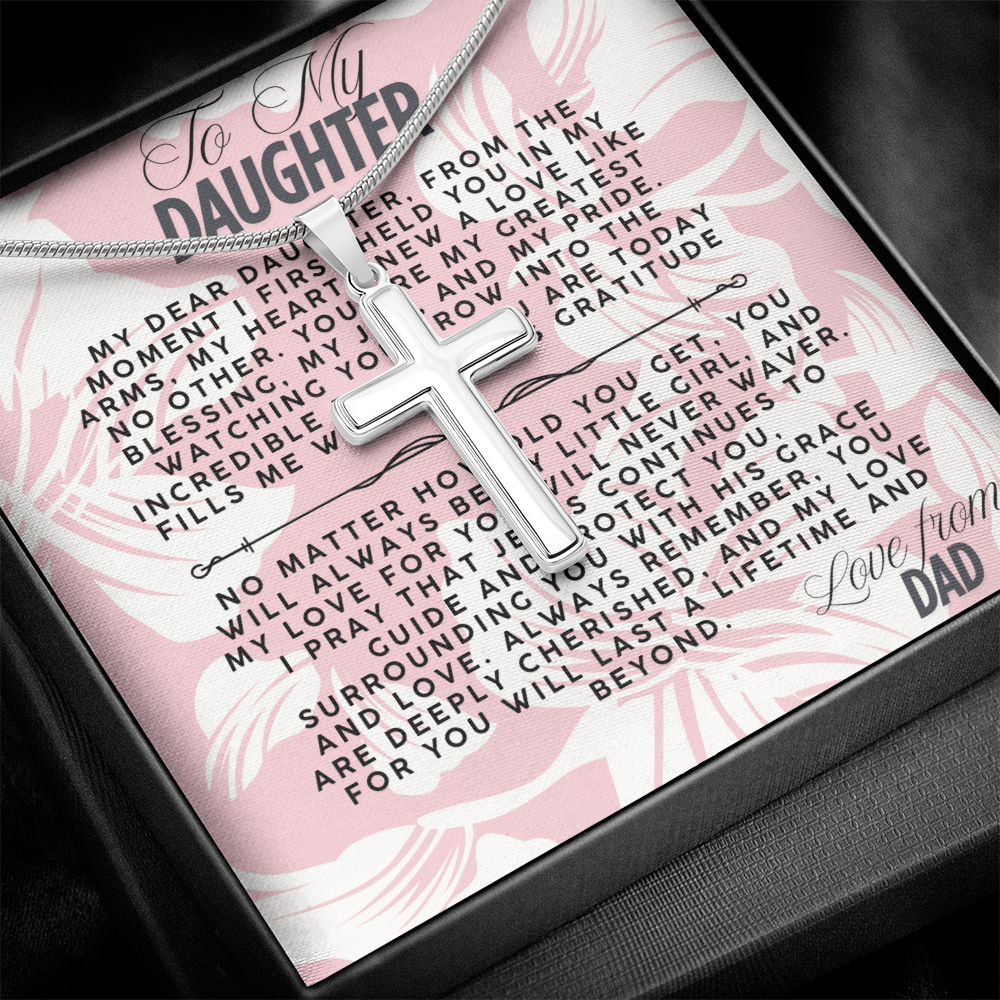 To My
DAUGHTER
MY DEAR DAUGHTER, FROM THE
MOMENT I FIRST HELD YOU IN MY
ARMS, MY HEART KNEW A LOVE LIKE
NO OTHER. YOU ARE MY GREATEST
BLESSING, MY JOY, AND MY PRIDE.
WATCHING YOU GROW INTO THE
INCREDIBLE YOU ARE TODAY
FILLS ME WITH GRATITUDE
NO MATTER HOW OLD YOU GET, YOU
WILL ALWAYS BE MY LITTLE GIRL, AND
MY LOVE FOR YOU WILL NEVER WAVER.
I PRAY THAT JESUS CONTINUES TO
GUIDE AND PROTECT YOU,
SURROUNDING YOU WITH HIS GRACE
AND LOVE. ALWAYS REMEMBER, YOU
ARE DEEPLY CHERISHED, AND MY LOVE
FOR YOU WILL LAST A LIFETIME AND
BEYOND.
Love from
DAD